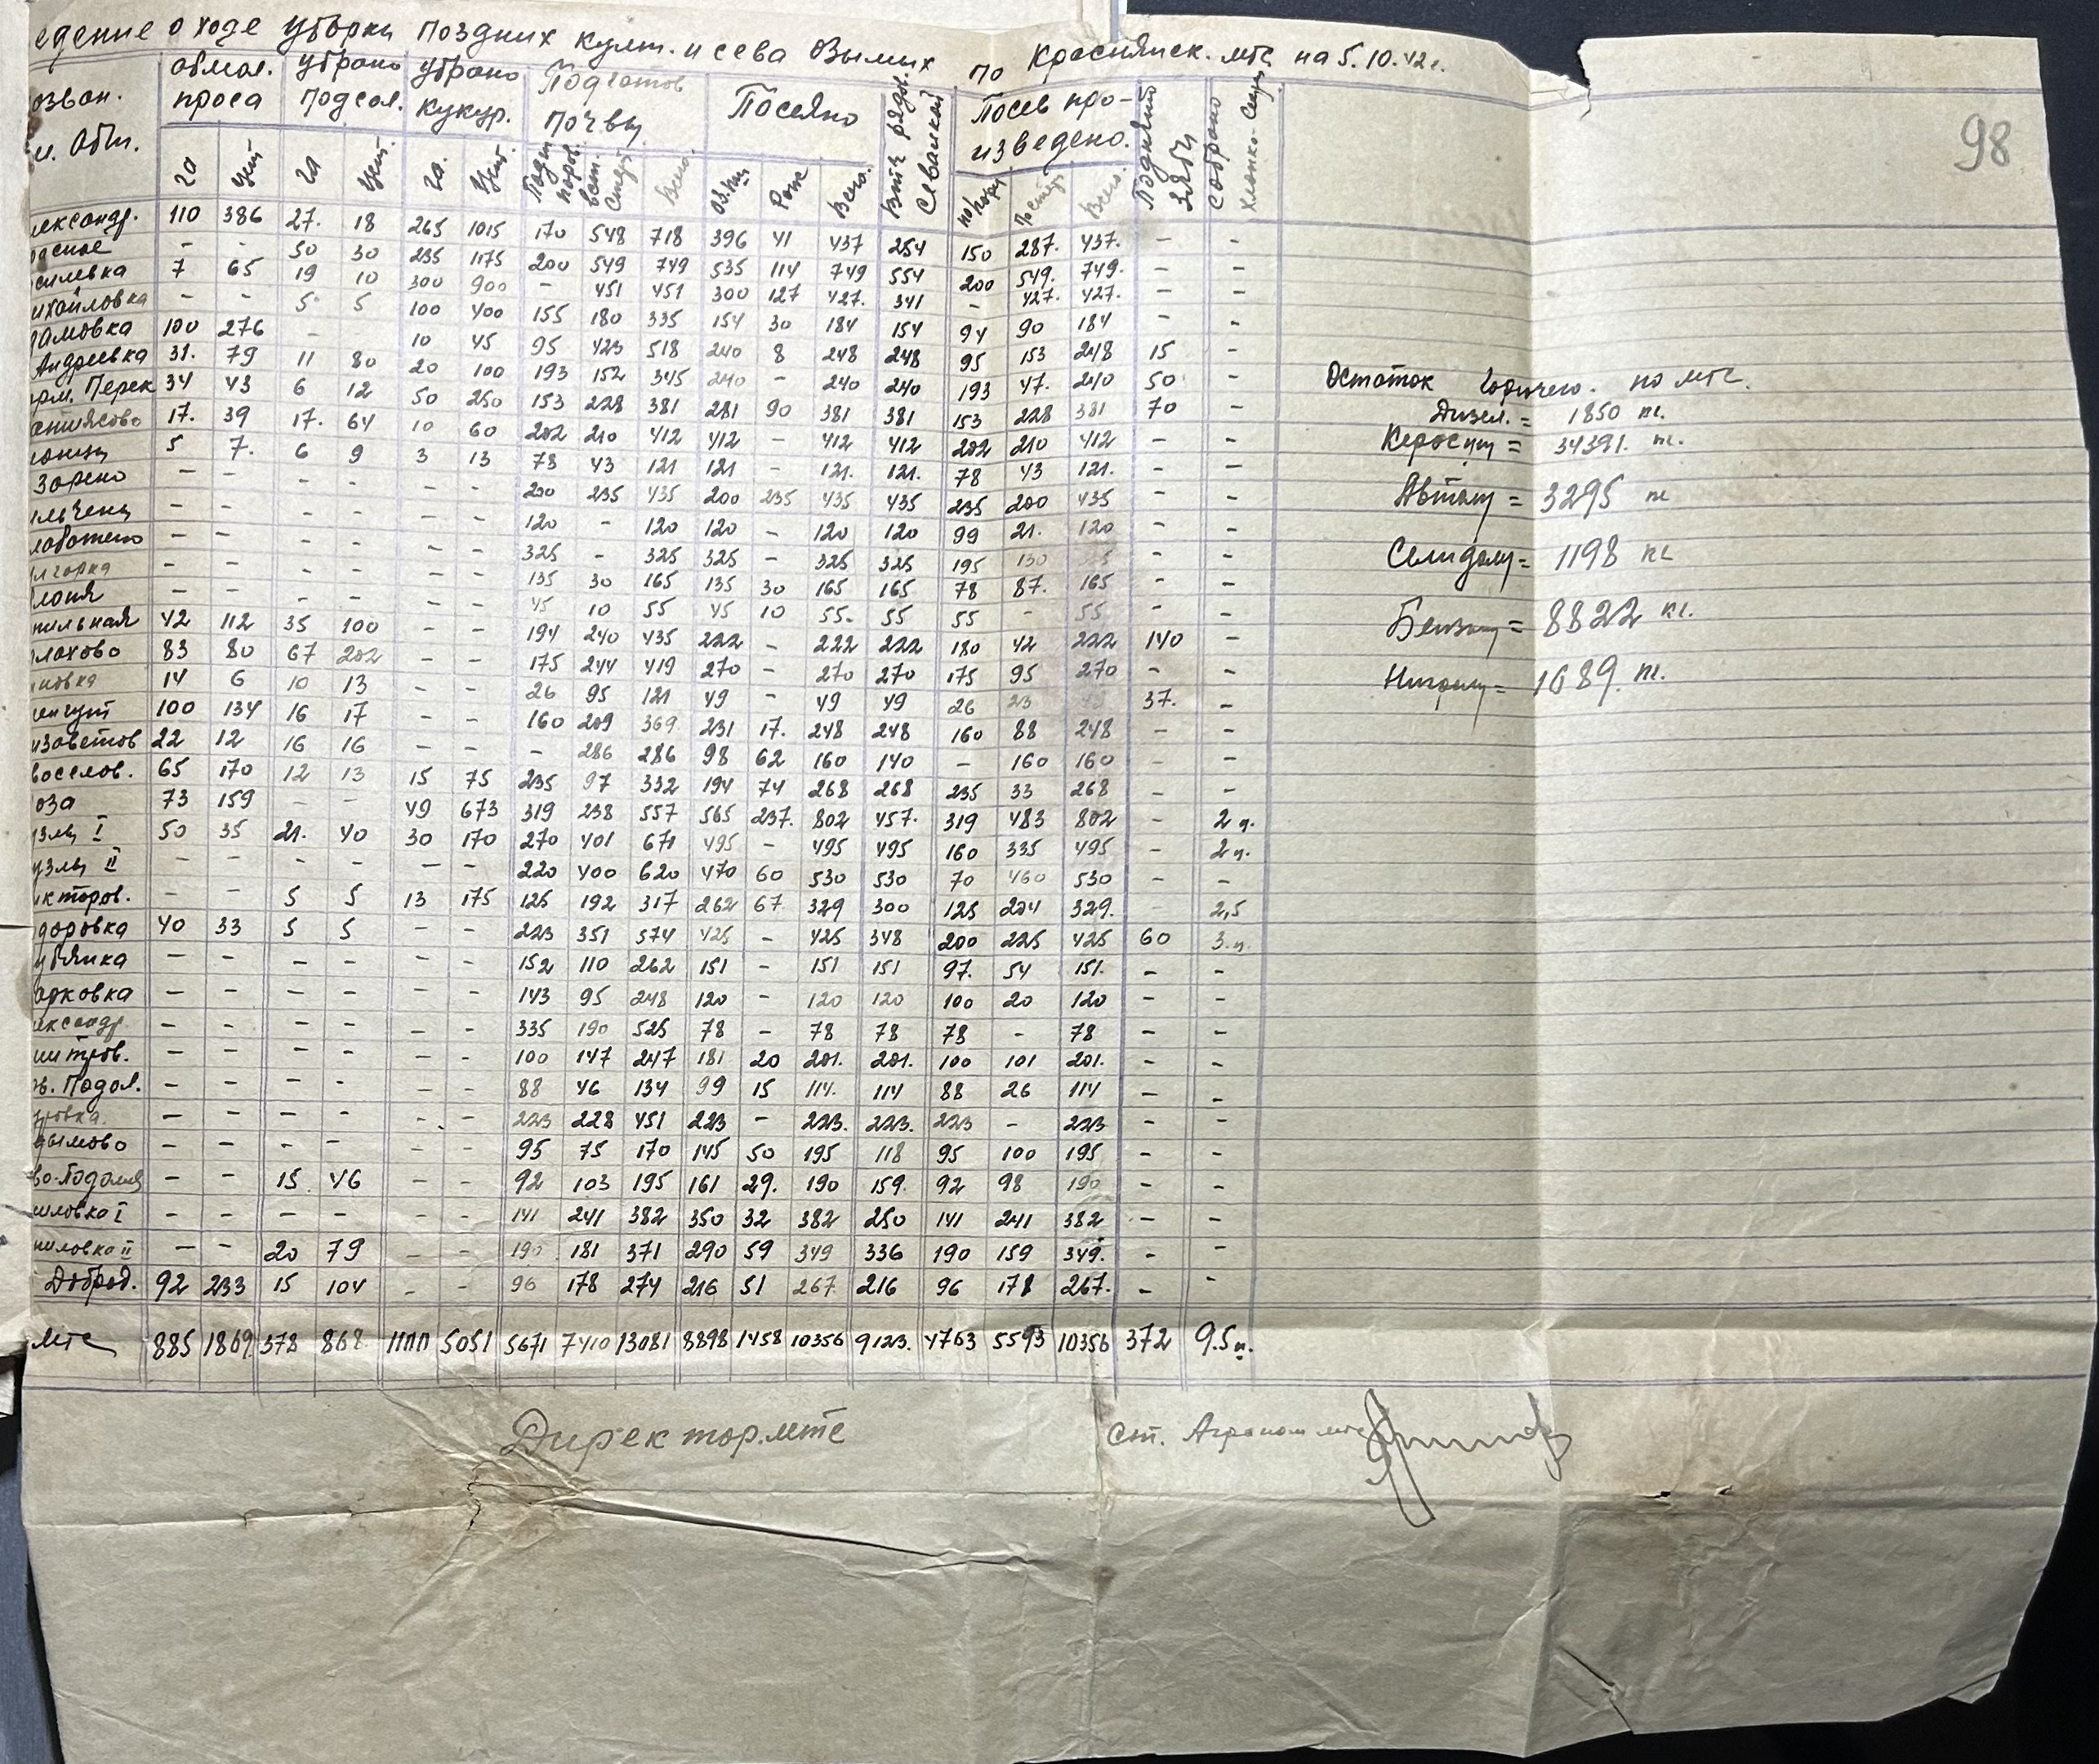 едение о ходе уборки поздних культ. и сева озымих по Краснянск. мтс на 5.10.42 г.
98
озван. обмол. убрано убрано Подготов Посеяно Посев про-
м. общ. проса подсол. кукур. почвы изведено.
га цент га цент. га. цент. Всего. Рожь Всего. Всего.
лександр. 110 386 27. 18 265 1015 170 548 718 396 41 437 254 150 287. 437. - -
расное - - 50 30 235 1175 200 549 749 535 114 749 554 200 549. 749. - -
силевка 7 65 19 10 300 900 - 451 451 300 127 427. 341 - 427. 427. - -
ихайловка - - 5 5 100 400 155 180 335 154 30 184 154 94 90 184 - -
рамовка 100 276 - 10 45 95 423 518 240 8 248 248 95 153 248 15 -
Андреевка 31. 79 11 80 20 100 193 152 345 240 - 240 240 193 47. 240 50 -
орм. Перек 34 43 6 12 50 250 153 228 381 281 90 381 381 153 228 381 70 -
17. 39 17. 64 10 60 202 210 412 412 - 412 412 202 210 412 - -
5 7. 6 9 3 13 78 43 121 121 - 121. 121. 78 43 121. - -
Зорено - - - - - - 200 235 435 200 235 435 435 235 200 435 - -
- - - - - - 120 - 120 120 - 120 120 99 21. 120 - -
- - - - - - 325 - 325 325 - 325 325 195 130 - -
- - - - - - 135 30 165 135 30 165 165 78 87. 165 - -
- - - - - - 45 10 55 45 10 55. 55 55 - 55 - -
пильная 42 112 35 100 - - 194 240 435 222 - 222 222 180 42 222 140 -
лахово 83 80 67 202 - - 175 244 419 270 - 270 270 175 95 270 - -
новка 14 6 10 13 - - 26 95 121 49 - 49 49 26 23 37. -
100 134 16 17 - - 160 209 369 231 17. 248 248 160 88 248 - -
изаветов 22 12 16 16 - - - 286 286 98 62 160 140 - 160 160 - -
воселов. 65 170 12 13 15 75 235 97 332 194 74 268 268 235 33 268 - -
оза 73 159 - - 49 673 319 238 557 565 237. 802 457. 319 483 802 - 2 ц.
узлы I 50 35 21. 40 30 170 270 401 671 495 - 495 495 160 335 495 - 2 ц.
узлы II - - - - - - 220 400 620 470 60 530 530 70 460 530 - -
икторов. - - 5 5 13 175 125 192 317 262 67 329 300 125 204 329. - 2,5
доровка 40 33 5 5 - - 223 351 574 425 - 425 348 200 225 425 60 3 ц.
убянка - - - - - - 152 110 262 151 - 151 151 97. 54 151. - -
арковка - - - - - - 143 95 248 120 - 120 120 100 20 120 - -
ександр. - - - - - - 335 190 525 78 - 78 78 78 - 78 - -
митров. - - - - - - 100 147 247 181 20 201. 201. 100 101 201. - -
ов. Подол. - - - - - - 88 46 134 99 15 114. 114 88 26 114 - -
ровка. - - - - - - 223 228 451 223 - 223. 223. 223 - 223 - -
рымово - - - - - - 95 75 170 145 50 195 118 95 100 195 - -
во-Подолия - - 15. 46 - - 92 103 195 161 29. 190 159. 92 98 190 - -
иловка I - - - - - - 141 241 382 350 32 382 250 141 241 382 - -
ниловка II - - 20 79 - - 190 181 371 290 59 349 336 190 159 349. - -
Доброд. 92 233 15 104 - - 96 178 274 216 51 267 216 96 178 267. - -
мтс 885 1869 378 868 1100 5051 5671 7410 13081 8898 1458 10356 9123. 4763 5593 10356 372 9.5 ц.
Остаток горючего. по мтс.
Дизел. = 1850 кг.
Керосину = 34391. кг.
Автолу = 3295 кг
Солидолу = 1198 кг
Бензину = 8822 кг.
Нигролу = 1689. кг.
Директор. мтс Ст. Агроном мтс